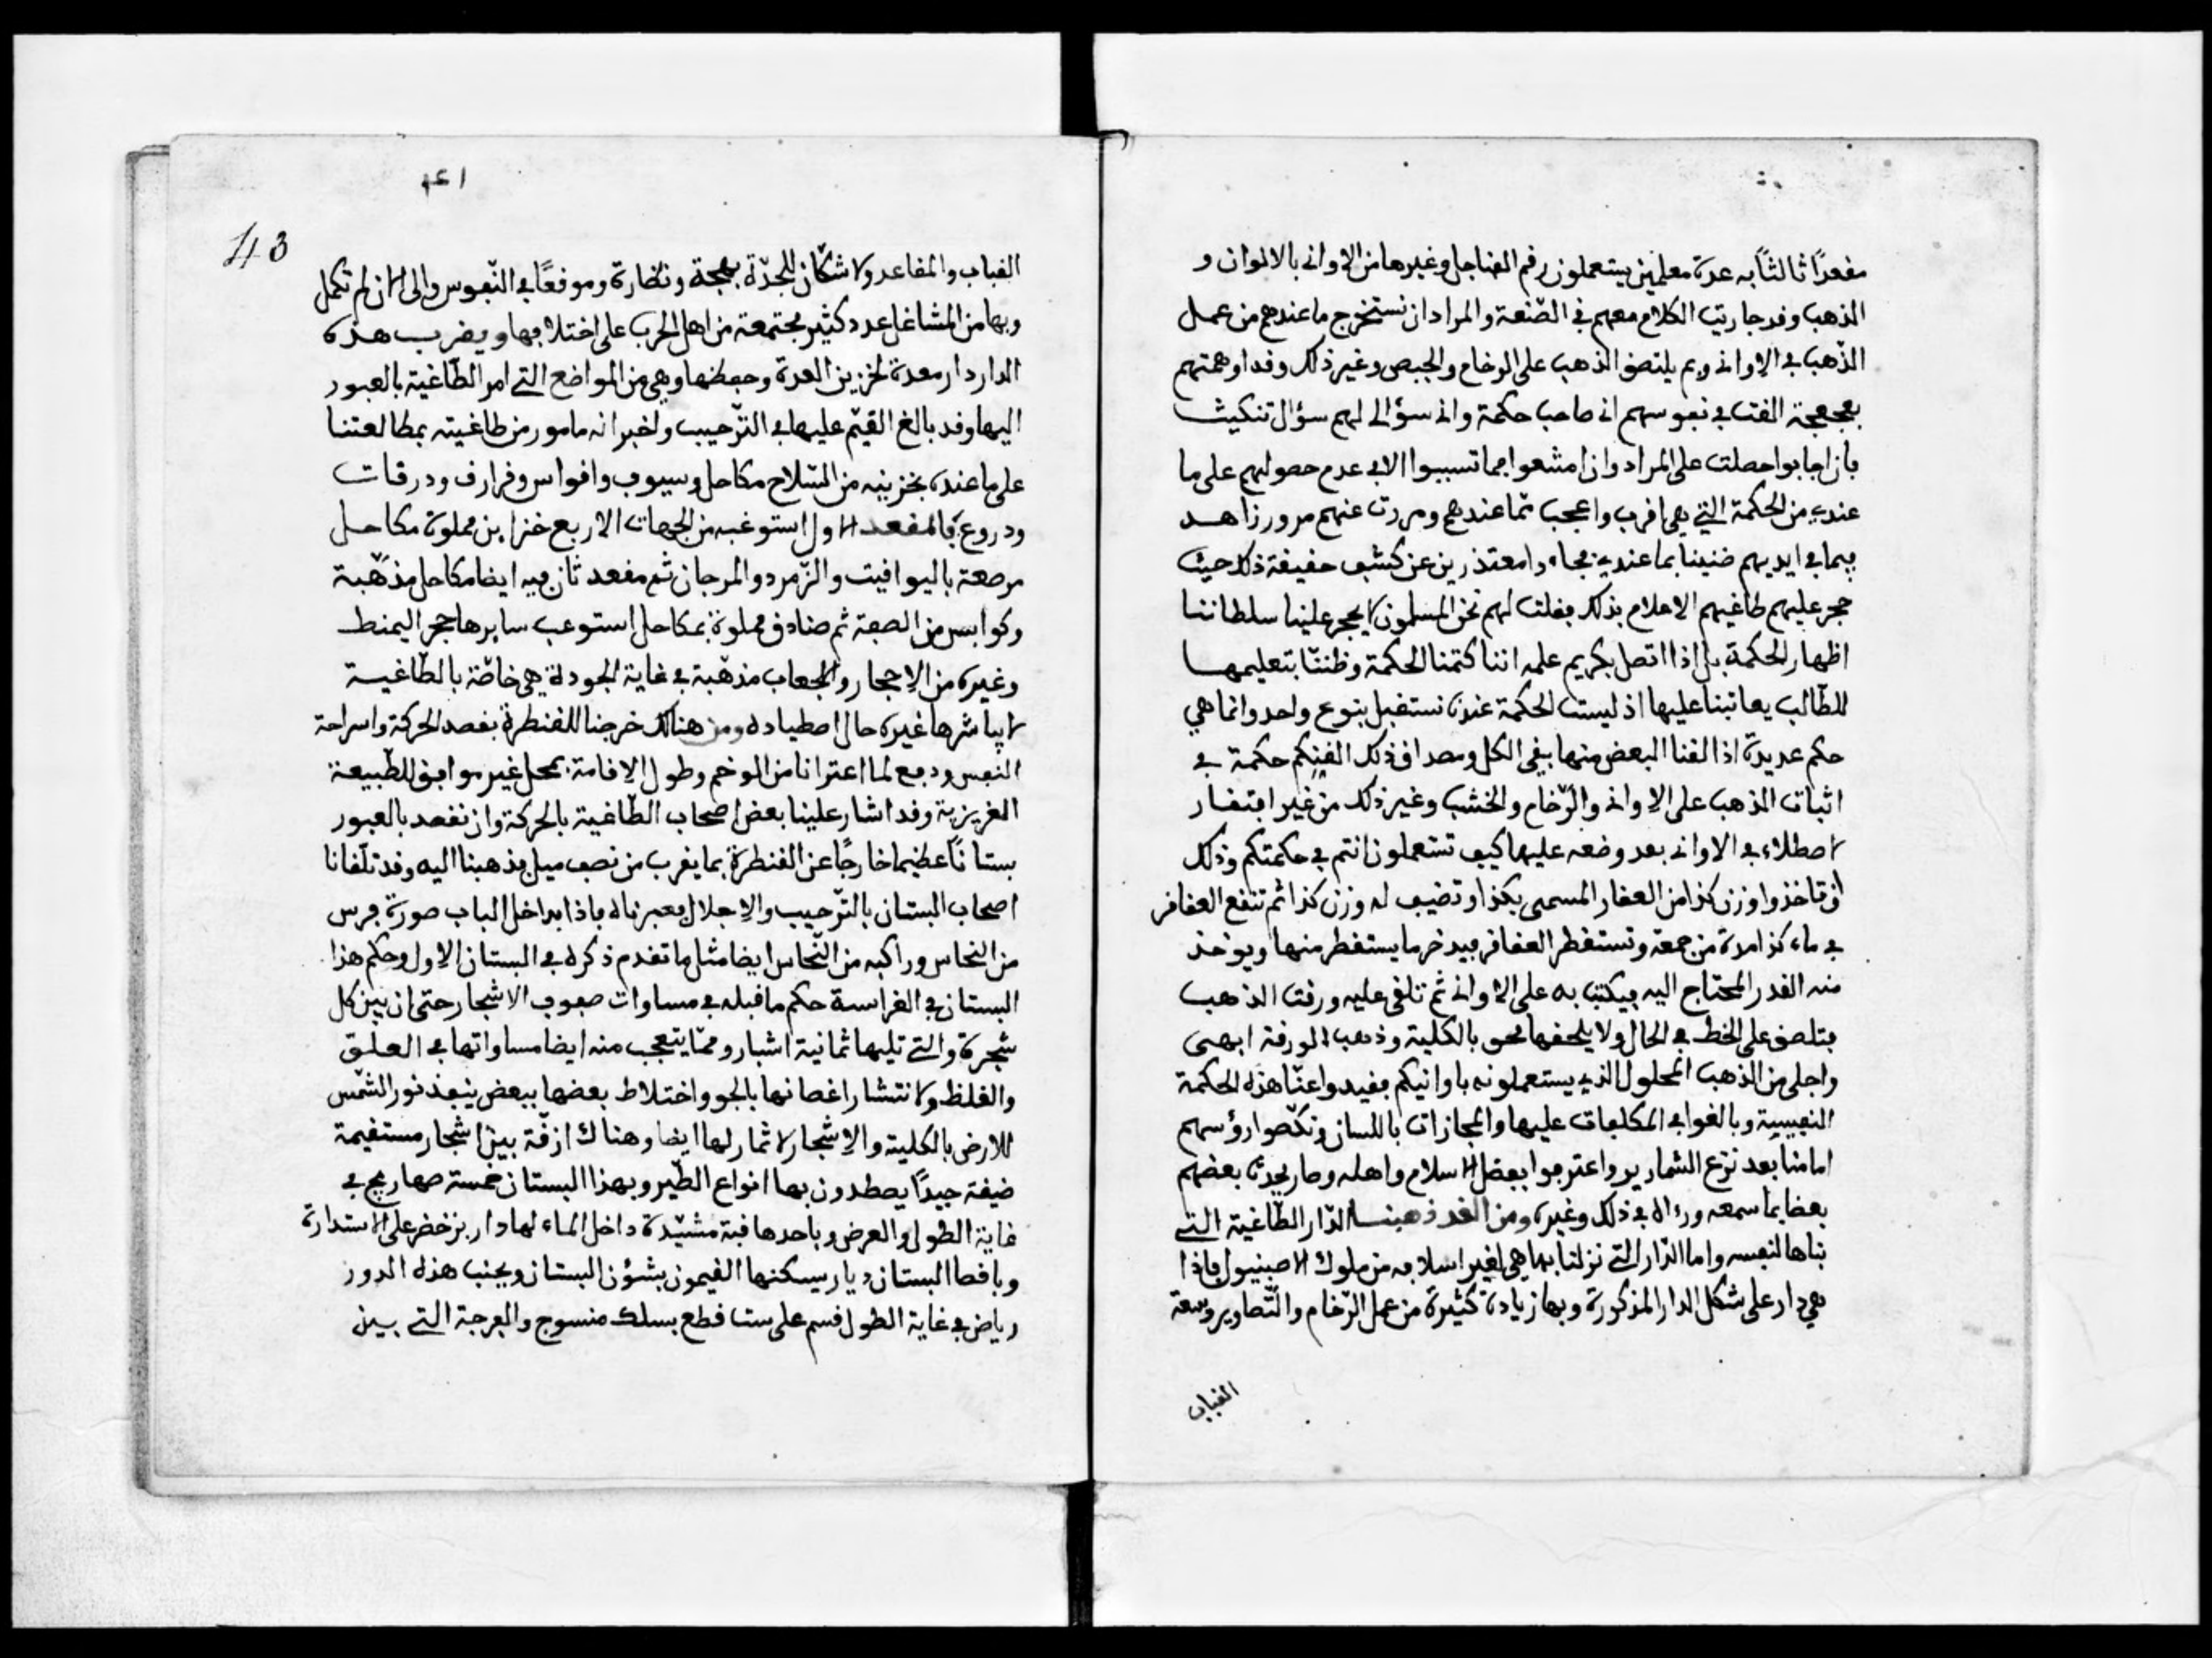 مقعدًا ثالثًا به عدة معلمين يستعملون رقم الفناجل وغيرها من الاواني بالالوان و
الذهب وقد جاريت الكلام معهم في الصّنعة والمراد ان نستخرج ما عندهم من عمل
الذّهب في الاواني وبم يلتصق الذهب على الرخام والجبص وغير ذلك وقد اوهمتهم
بعجعجة القت في نفوسهم اني صاحب حكمة واني سؤالي لهم سؤال تنكيث
فان اجابوا حصلت على المراد وان امتنعوا فما تسببوا الا في عدم حصولهم على ما
عندي من الحكمة التي هي اقرب واعجب ممّا عندهم ومررت عنهم مرور زاهد
فيما في ايديهم ضنينا بما عندي فجاءوا معتذرين عن كشف حقيقة ذلك حيث
حجر عليهم طاغيهم الاعلام بذلك فقلت لهم نحن المسلمون لا يحجر علينا سلطاننا
اظهار الحكمة بل اذا اتصل بكريم علمه اننا كتمنا الحكمة وظننّا بتعليمها
للطّالب يعاتبنا عليها اذ ليست الحكمة عندنا نستقبل بنوع واحد وانما هي
حكم عديدة اذا القنا البعض منها بقي الكل ومصداق ذلك القنكم حكمة في
اثبات الذهب على الاواني والرّخام والخشب وغير ذلك من غير افتقار
لاصطلاء في الاواني بعد وضعه عليها كيف تستعملون انتم في حكمتكم وذلك
ان تاخذوا وزن كذا من العقار المسمى بكذا وتضيف له وزن كذا ثم تنقع العقاقر
في ماء كذا مدة من جمعة وتستقطر العقاقر فيدخر ما يستقطر منها ويوخذ
منه القدر المحتاج اليه فيكتب به على الاواني ثم تلقى عليه ورقت الذهب
فتلصق على الخط في الحال ولا يلحقها محو بالكلية وذهب الورقة ابهى
واجلى من الذهب المحلول الذي يستعملونه باوانيكم فقيدوا عنّا هذه الحكمة
النفيسة وبالغوا في المكافات عليها والمجازات باللسان ونكّصوا رؤسهم
امامنا بعد نزع الشمارير واعترفوا بفضل الاسلام واهله وصار يحدث بعضهم
بعضا بما سمعه ورءاه في ذلك وغيره ومن الغد ذهبنا الدّار الطّاغية التي
بناها لنفسه واما الدّار التي نزلنا بها هي لغير اسلافه من ملوك الاصبنيول فاذا
هي دار على شكل الدار المذكورة وبها زيادة كثيرة من عمل الرّخام والتّصاوير وسعة
القباب
43
القباب والمقاعد ولا شك ان للجدّة بهجة ونضارة وموقعًا في النّفوس والى الان لم تكمل
وبها من المشاغل عدد كثير مجتمعة من اهل الحرب على اختلافها ويقرب هذه
الدار دار معدة لخزين العدة وحفظها وهي من المواضع التي امر الطّاغية بالعبور
اليها وقد بالغ القيّم عليها في التّرحيب واخبر انه مامور من طاغيته بمطالعتنا
على ما عنده بخزينه من السّلاح مكاحل وسيوف واقواس وقرارف ودرقات
ودروع فالمقعد الاول استوعبه من الجهات الاربع خزاين مملوة مكاحل
مرصعة باليواقيت والزّمرد والمرجان ثم مقعد ثان فيه ايضا مكاحل مذهّبة
وكوابس من الصبغة ثم صنادق مملوة بمكاحل استوعب سايرها حجر اليمنط
وغيره من الاحجار والجعاب مذهّبة في غاية الجودة هي خاصّة بالطّاغية
لا يباشرها غيره حال اصطياده ومن هنالك خرجنا للقنطرة بقصد الحركة واسراحة
النفس ودفع لما اعترانا من الوخم وطول الاقامة بمحل غير موافق للطّبيعة
الغريزية وقد اشار علينا بعض اصحاب الطّاغية بالحركة وان نقصد بالعبور
بستانًا عظيما خارجًا عن القنطرة بما يقرب من نصف ميل فذهبنا اليه وقد تلقانا
اصحاب البستان بالتّرحيب والاجلال فعبرناه فاذا بداخل الباب صورة فرس
من النحاس وراكبه من النّحاس ايضا مثل ما تقدم ذكره في البستان الاول وحكم هذا
البستان في الغراسة حكم ما قبله في مساوات صفوف الاشجار حتى ان بين كل
شجرة والتي تليها ثمانية اشبار وممّا يتعجب منه ايضا مساواتها في العلق
والغلظ ولانتشار اغصانها بالجو واختلاط بعضها ببعض ينفذ نور الشمس
للارض بالكلية والاشجار لا ثمار لها ايضا وهناك ازقّة بين اشجار مستقيمة
ضيقة جيدًا يصطدون بها انواع الطّير وبهذا البستان خمسة صهاريج في
غاية الطول والعرض وباحدها قبة مشيّدة داخل الماء لها دار بزخضر على الاستدارة
وباقصا البستان ديار يسكنها القيمون بشؤن البستان وبجنب هذه الدور
رياض في غاية الطول قسم على ست قطع بسلك منسوج والفرجة التي بين